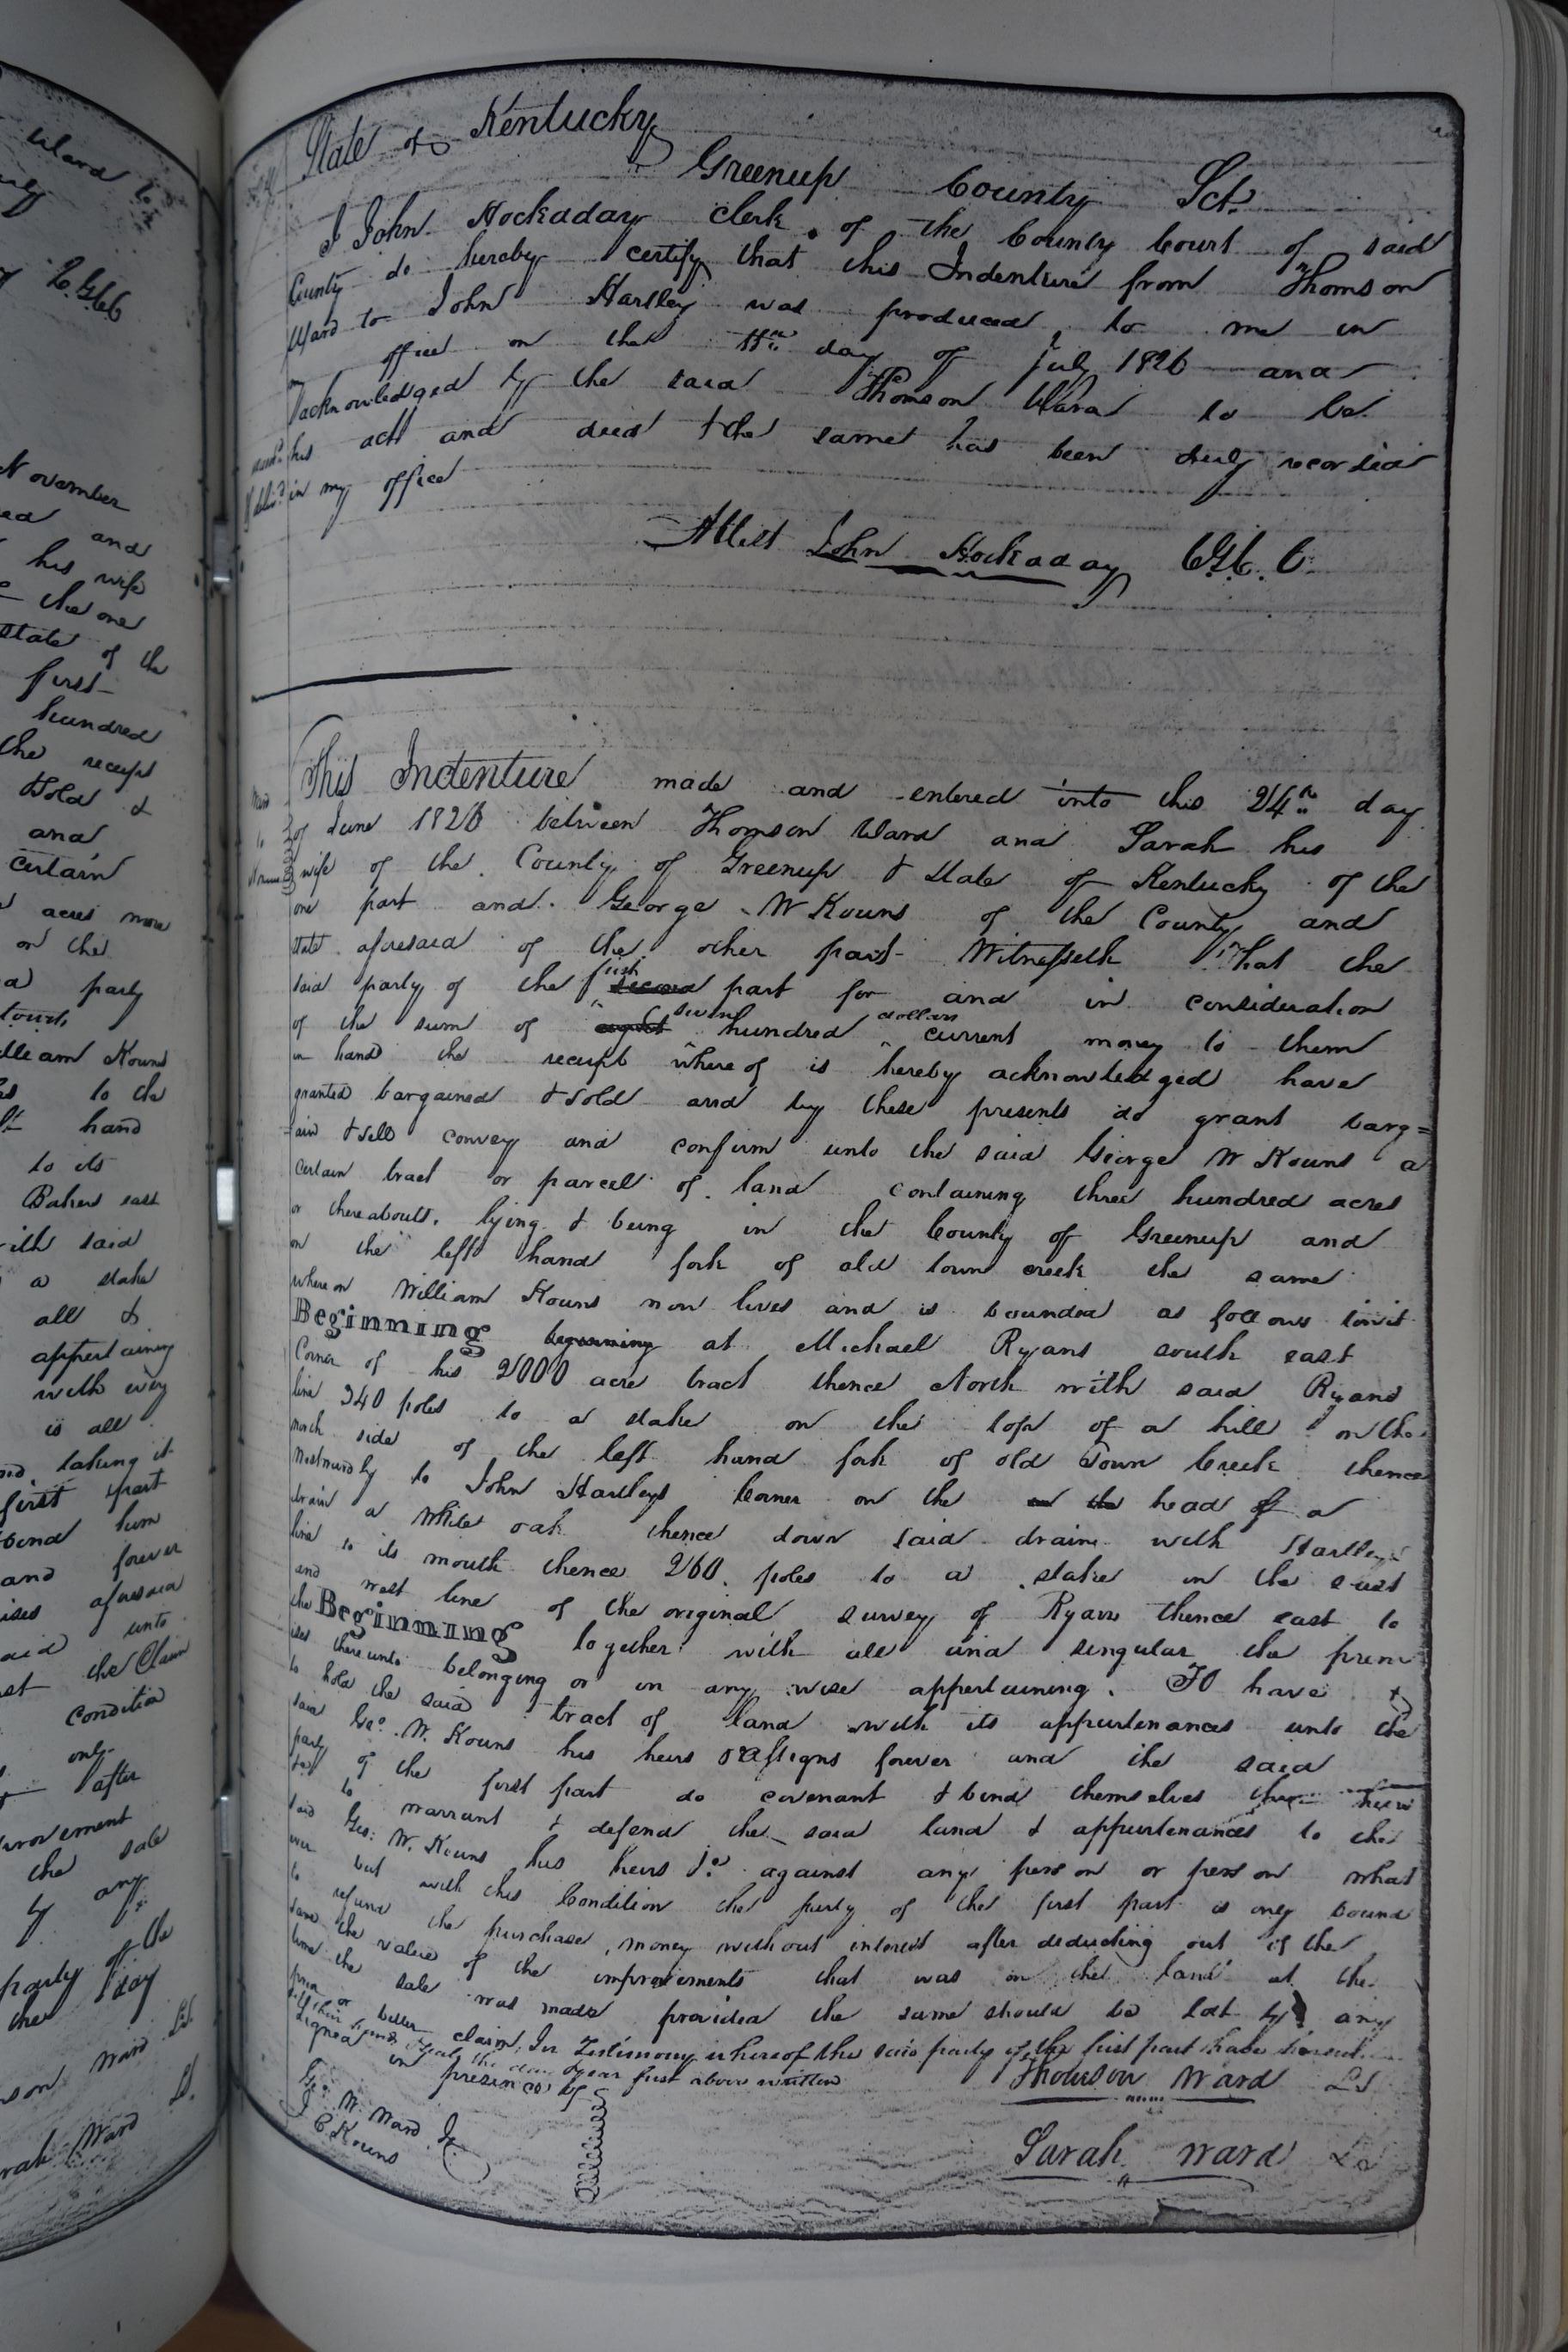 State of Kentucky
Greenup County Sct.
I John Hockaday clerk of the County Court of said
County do hereby certify that this Indenture from Thomson
Ward to John Hartley was produced to me in
my office on the 11th day of July 1826 and
acknowledged by the said Thomson Ward to be
his act and deed & the same has been duly recorded
in my office
Attest John Hockaday C.G.C.C.
This Indenture made and entered into this 24th day
of June 1826 between Thomson Ward and Sarah his
wife of the County of Greenup & State of Kentucky of the
one part and George W Kouns of the County and
State aforesaid of the other part Witnesseth That the
said party of the first second part for and in consideration
of the sum of eight seven hundred dollars current money to them
in hand the receipt whereof is hereby acknowledged have
granted bargained & sold and by these presents do grant barg=
ain & sell convey and confirm unto the said George W Kouns a
certain tract or parcell of land containing three hundred acres
or thereabouts, lying & being in the County of Greenup and
on the left hand fork of old town creek the same
where on William Kouns now lives and is bounded as follows towit
Beginning beginning at Michael Ryans south east
Corner of his 2000 acre tract thence North with said Ryans
line 340 poles to a stake on the top of a hill on the
north side of the left hand fork of old Town Creek thence
Westwardly to John Hartleys Corner on the on the head of a
drain a White oak thence down said drain with Hartleys
line to its mouth thence 260 poles to a stake in the east
and west line of the original survey of Ryans thence east to
the Beginning together with all and singular the prem
ises thereunto belonging or in any wise appertaining. To have &
to hold the said tract of land with its appurtenances unto the
said Geo. W. Kouns his heirs or assigns forever and the said
party of the first part do covenant & bind themselves their heirs
to warrant & defend the said land & appurtenances to the
said Geo: W. Kouns his heirs &c. against any person or person what
ever but with this Condition the party of the first part is only bound
to refund the purchase money without interest after deducting out of the
same the value of the improvements that was on the land at the
time the sale was made provided the same should be lost by any
prior or better claim, In Testimony whereof the said party of the first part have hereunto
set their hands & seals the day & year first above written
Signed in presence of
Thomson Ward LS
Geo. W. Ward Jr.
J C Kouns
Sarah Ward LS
Ward to
November
and
his wife
the one
State of the
first
hundred
the receipt
& Sold &
and
certain
acres more
on the
party
William Kouns
to the
hand
to its
Bakers east
with said
a stake
all &
appertaining
with every
is all
taking it
first part
bind him
and forever
aforesaid
said unto
the Claim
Condition
only
after
improvement
the sale
by any
party of the
the day
Ward LS
Sarah Ward